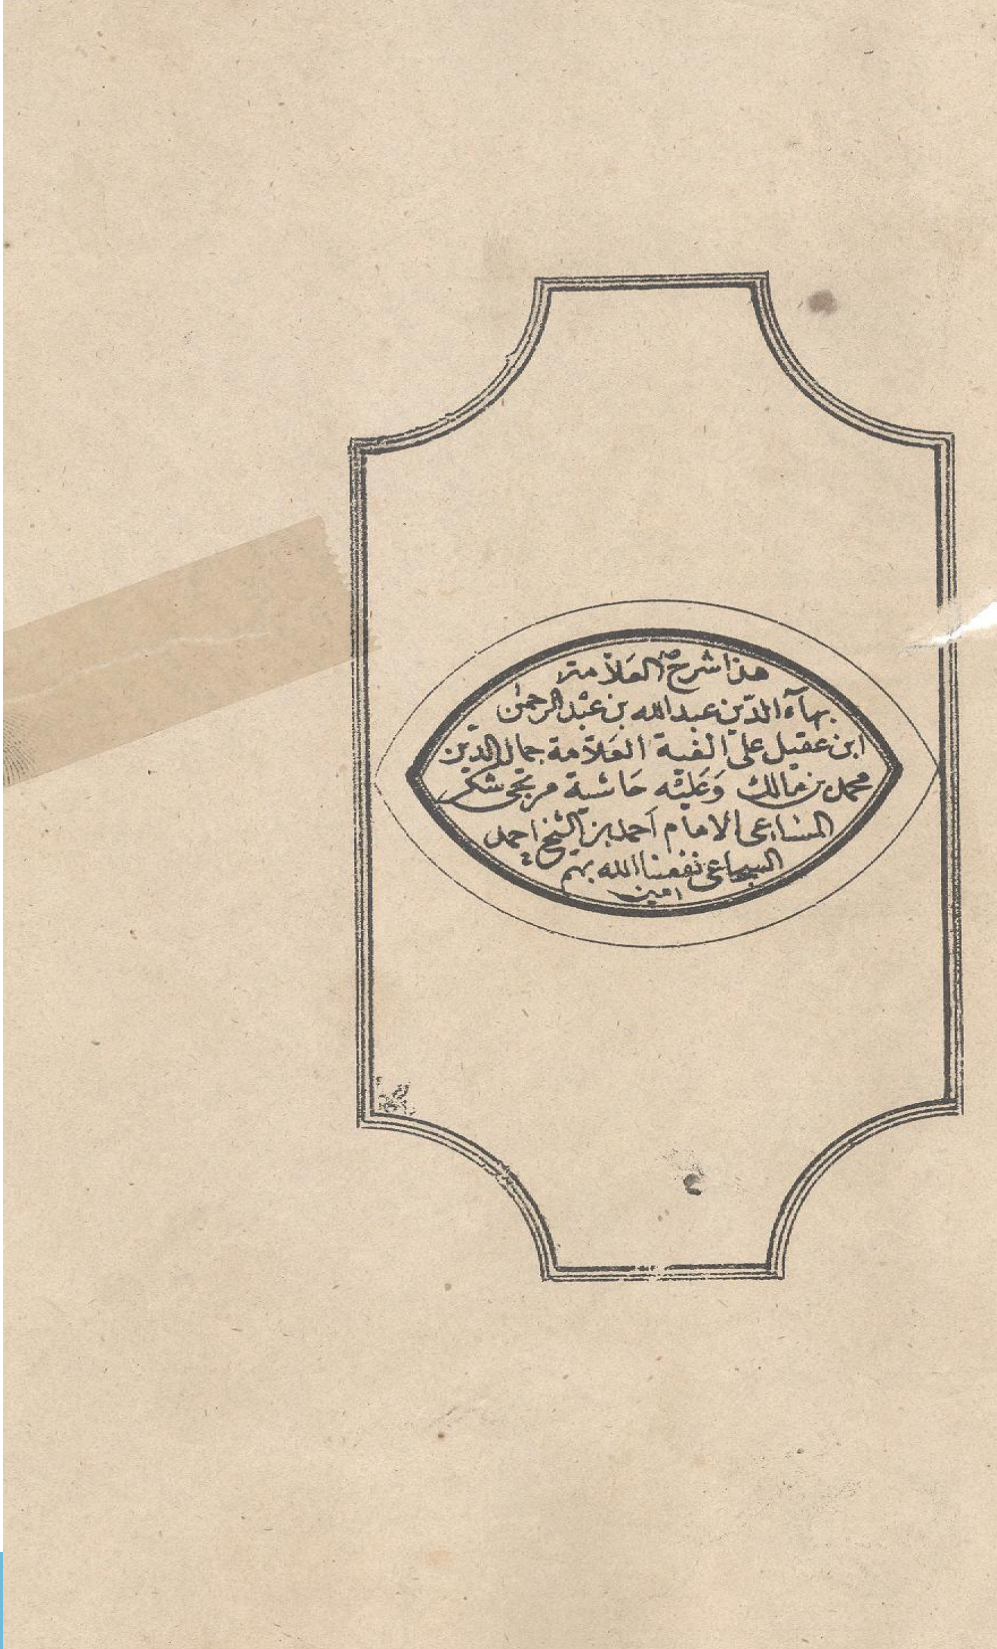 هذا شرح العَلّامة
بهآء الدّين عبد الله بن عبْد الرحمٰن
ابن عقيل علىٰ الفية العَلاّمة جمال الدّين
محمد بن مالك وَعَليْه حَاشية مرتجى شكر
المساعى الامام اَحمد بن الشيخ احمد
السجاعى نفعنا الله بهم
امين